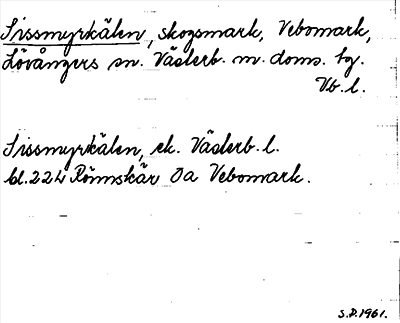 Sissmyrkälen, skogsmark, Vebomark,
Lövångers sn. Västerb. m. doms. tg.
Vb. l.
Sissmyrkälen, ek. Västerb. l.
bl. 22 Rönnskär Öa Vebomark.
S.D. 1961.